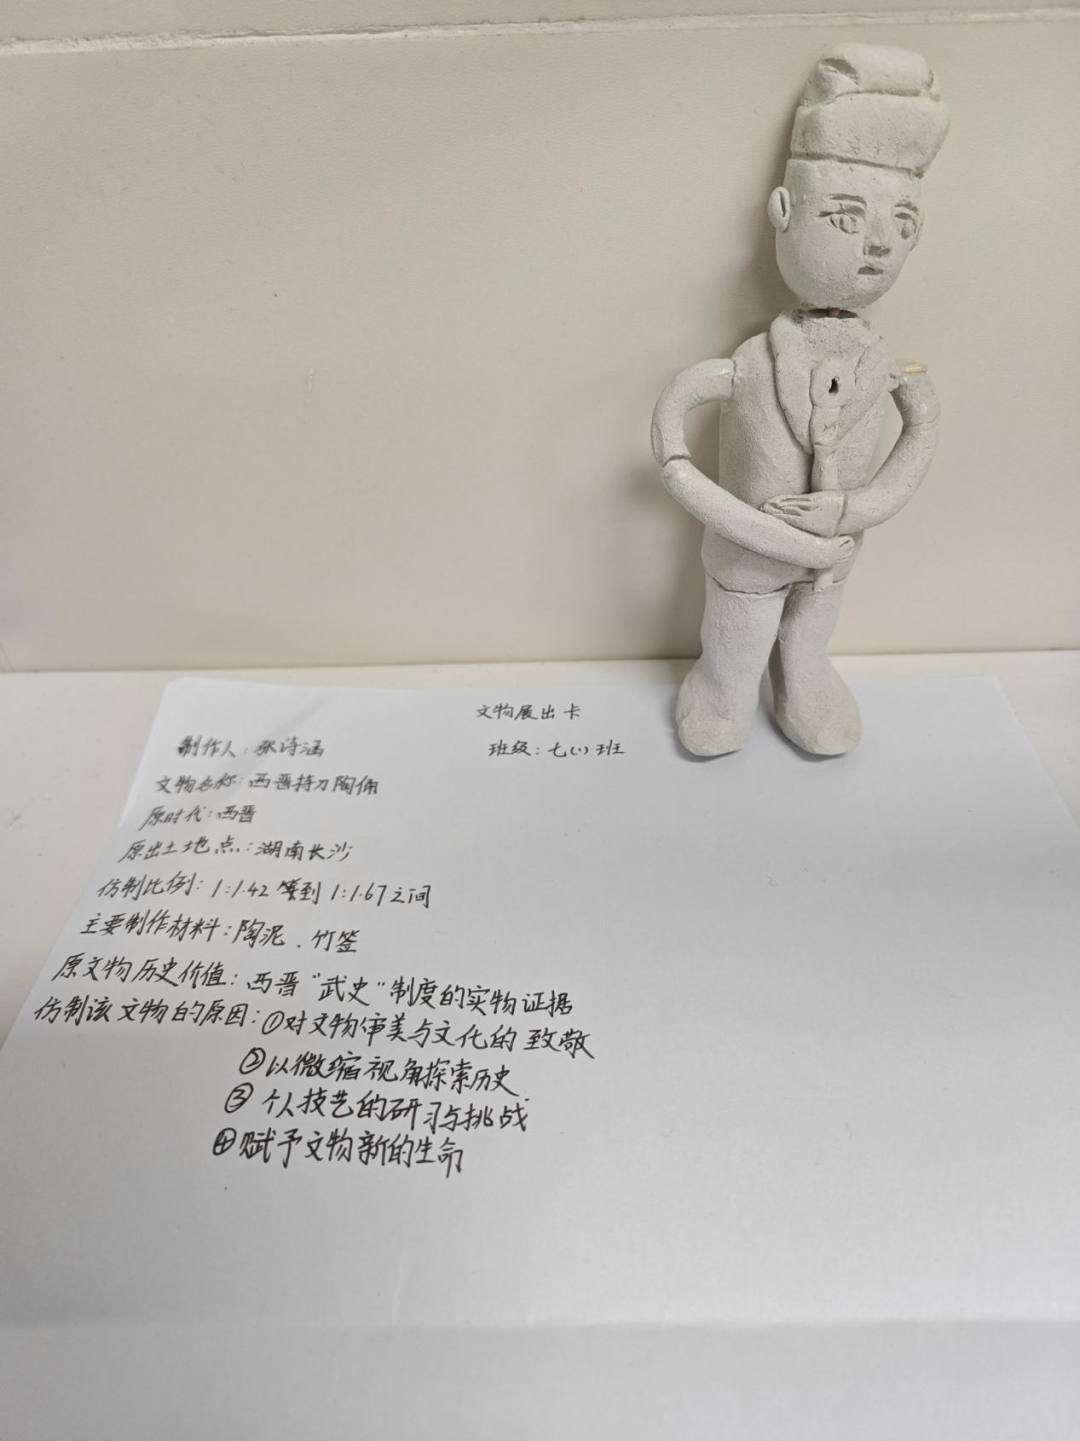 文物展出卡
制作人：张诗涵 班级：七(1)班
文物名称：西晋持刀陶俑
原时代：西晋
原出土地点：湖南长沙
仿制比例：1:1.42 等到 1:1.67之间
主要制作材料：陶泥、竹签
原文物历史价值：西晋“武史”制度的实物证据
仿制该文物的原因：①对文物审美与文化的致敬
②以微缩视角探索历史
③个人技艺的研习与挑战
④赋予文物新的生命